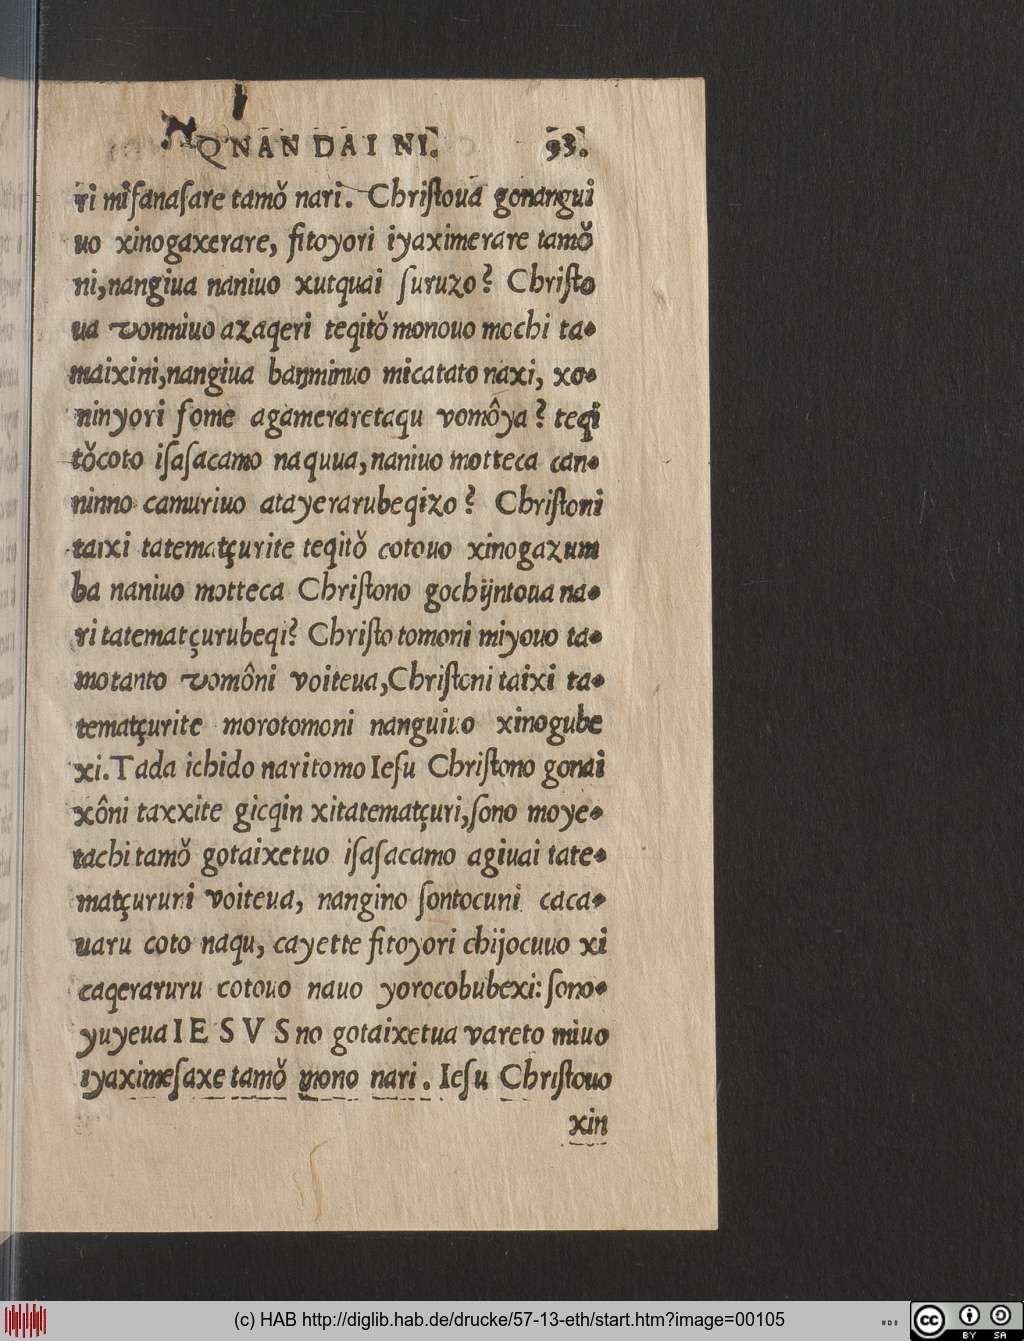 QVAN DAI NI. 93.
ri miſanaſare tamŏ nari. Chriſtoua gonangui
uo xinogaxerare, ſitoyori iyaximerare tamŏ
ni, nangiua naniuo xutquai ſuruzo? Chriſto
ua vonmiuo azaqeri teqitŏ monouo mochi ta-
maixini, nangiua banminuo micatato naxi, xo-
ninyori ſome agameraretaqu vomôya? teqi
tŏcoto iſaſacamo naquua, naniuo motteca can-
ninno camuriuo atayerarubeqizo? Chriſtoni
taixi tatematçurite teqitŏ cotouo xinogazum
ba naniuo motteca Chriſtono gochijntoua na-
ri tatematçurubeqi? Chriſto tomoni miyouo ta-
motanto vomôni voiteua, Chriſtoni taixi ta-
tematçurite morotomoni nanguiuo xinogube
xi. Tada ichido naritomo Ieſu Chriſtono gonai
xôni taxxite gicqin xitatematçuri, ſono moye-
tachi tamŏ gotaixetuo iſaſacamo agiuai tate-
matçururi voiteua, nangino ſontocuni caca-
uaru coto naqu, cayette ſitoyori chijocuuo xi
caqeraruru cotouo nauo yorocobubexi: ſono-
yuyeua IESVSno gotaixetua vareto miuo
iyaximeſaxe tamŏ mono nari. Ieſu Chriſtouo
xin
(c) HAB http://diglib.hab.de/drucke/57-13-eth/start.htm?image=00105
cc BY SA